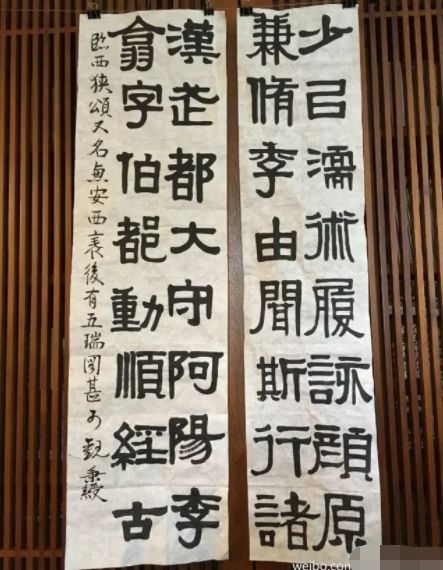 少㠯濡術履詠顔原
兼脩季由聞斯行諸
漢武都大守阿陽李
翕字伯都動順經古
臨西狹頌又名惠安西表後有五瑞圖甚可觀秉綬
weibo.com